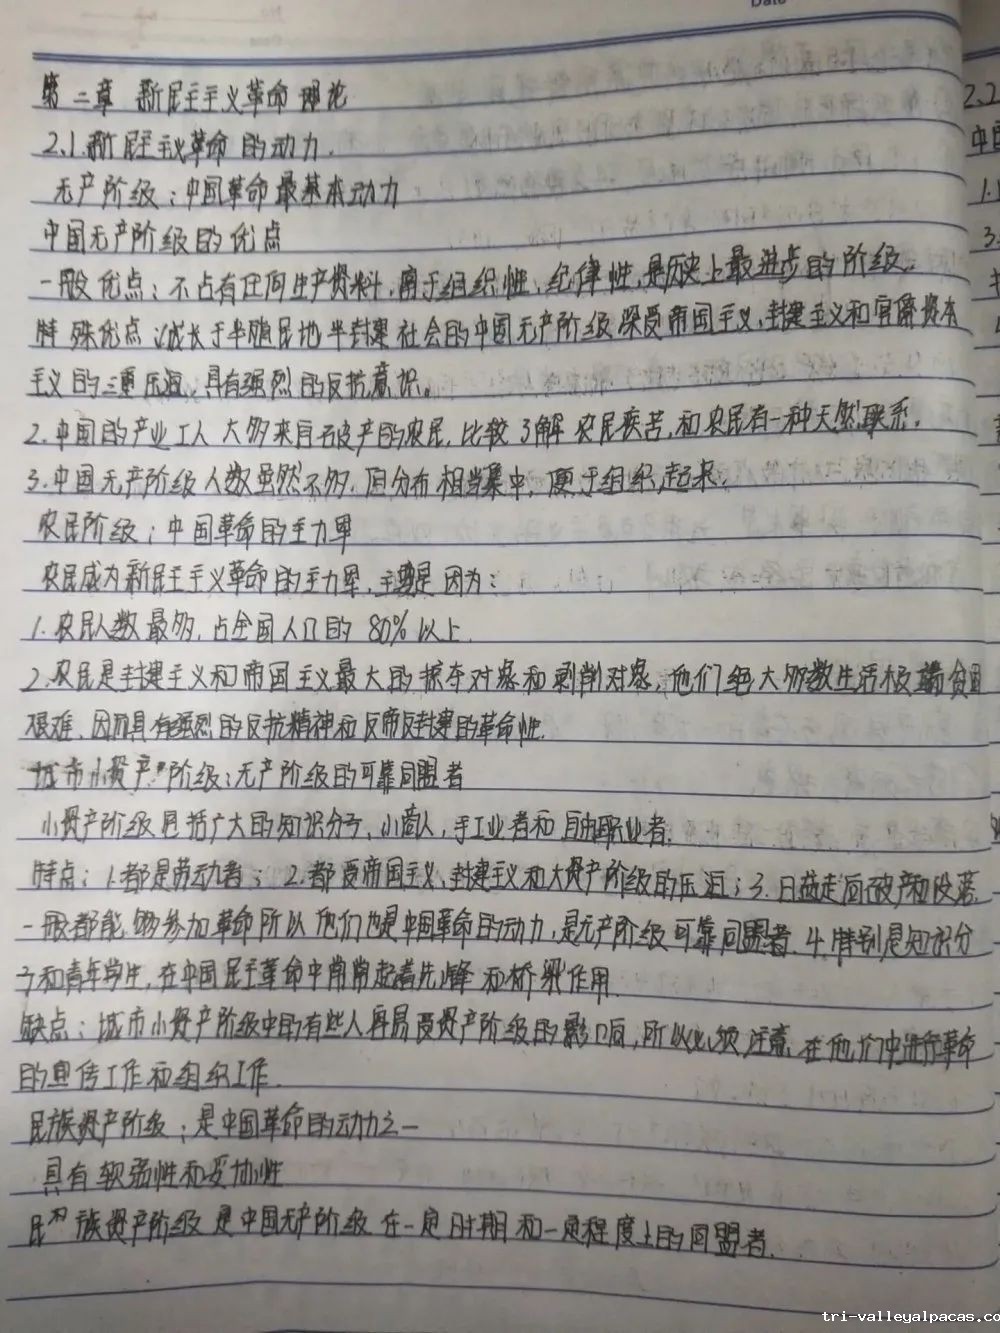 Date
第二章 新民主主义革命理论
2.1.新民主主义革命的动力.
无产阶级:中国革命最基本动力
中国无产阶级的优点
一般优点:不占有任何生产资料,富于组织性、纪律性,是历史上最进步的阶级。
特殊优点:1.成长于半殖民地半封建社会的中国无产阶级深受帝国主义、封建主义和官僚资本
主义的三重压迫,具有强烈的反抗意识。
2.中国的产业工人大多来自破产的农民,比较了解农民疾苦,和农民有一种天然联系.
3.中国无产阶级人数虽然不多,但分布相当集中,便于组织起来.
农民阶级:中国革命的主力军
农民成为新民主主义革命的主力军,主要是因为:
1.农民人数最多,占全国人口的80%以上.
2.农民是封建主义和帝国主义最大的掠夺对象和剥削对象,他们绝大多数生活极端贫困
艰难,因而具有强烈的反抗精神和反帝反封建的革命性.
城市小资产阶级:无产阶级的可靠同盟者
小资产阶级包括广大的知识分子、小商人,手工业者和自由职业者.
特点:1.都是劳动者;2.都受帝国主义、封建主义和大资产阶级的压迫;3.日益走向破产和没落.
一般都能够参加革命所以他们也是中国革命的动力,是无产阶级可靠同盟者.4.特别是知识分
子和青年学生,在中国民主革命中常常起着先锋和桥梁作用.
缺点:城市小资产阶级中的有些人容易受资产阶级的影响,所以必须注意在他们中进行革命
的宣传工作和组织工作.
民族资产阶级:是中国革命的动力之一
具有软弱性和妥协性
民族资产阶级是中国无产阶级在一定时期和一定程度上的同盟者.
2.2
中国
1.
3.
tri-valleyalpacas.co